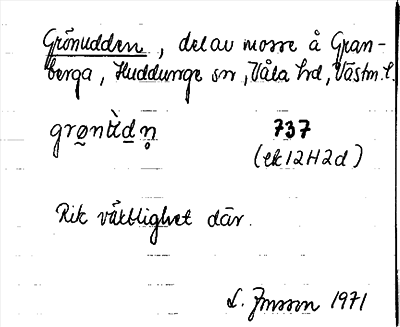 Grönudden, del av mosse å Gran-
berga, Huddunge sn, Våla hd, Västm.l.
grø̱nɯ̀d̲n̥ 737
(ek 12H2d)
Rik växtlighet där.
1971